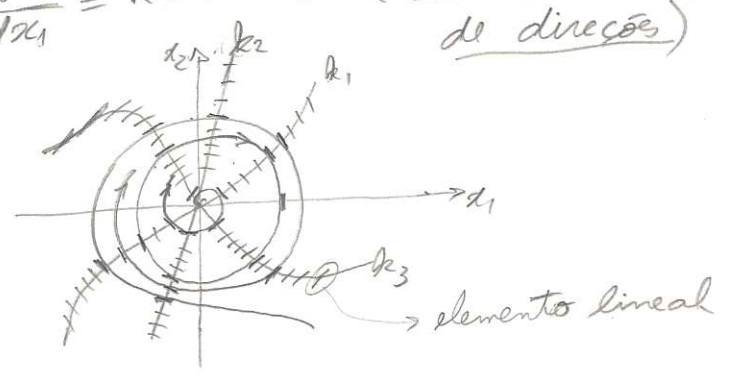 dx1 =
de direções)
x2
k2
k1
x1
k3
elemento lineal